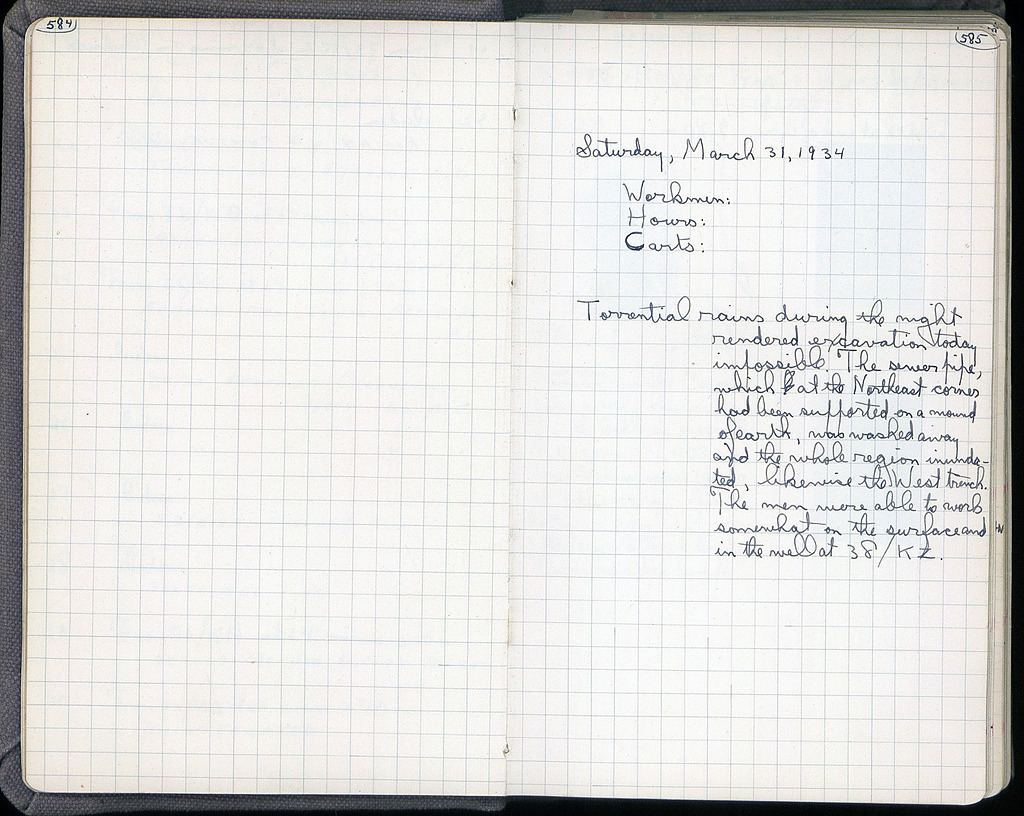 584
585
Saturday, March 31, 1934
Workmen:
Hours:
Carts:
Torrential rains during the night
rendered excavation today
impossible. The sewer pipe,
which at the Northeast corner
had been supported on a mound
of earth, was washed away
and the whole region inunda-
ted, likewise the West trench.
The men were able to work
somewhat on the surface and
in the well at 38/ΚΖ.